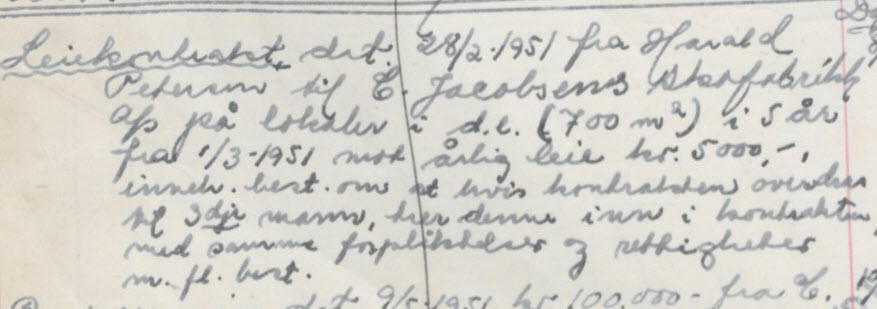 Leiekontrakt, dat. 28/2-1951 fra Harald
Petersen til E. Jacobsens Skofabrikk
A/S på lokaler i d.e. (700 m²) i 5 år
fra 1/3-1951 mot årlig leie kr. 5000,-,
inneh. best. om at hvis kontrakten overdras
til 3dje mann, trer denne inn i kontrakten
med samme forpliktelser og rettigheter
m. fl. best.
dat 9/5-1951 kr. 100.000- fra E.